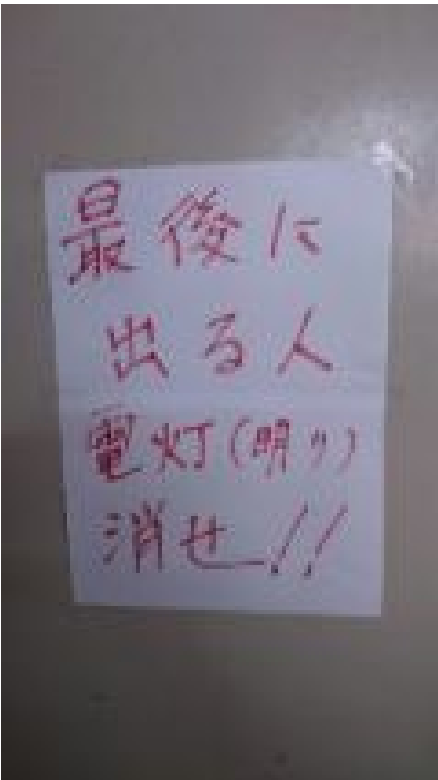 最後に
出る人
電灯(明り)
消せ!!